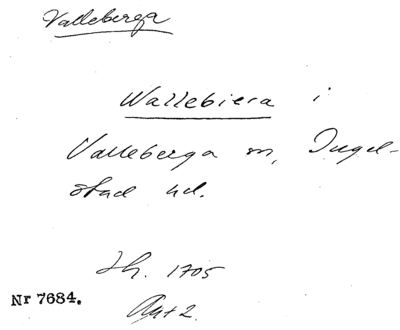 Valleberga
Wallebiera i
Valleberga sn, Ingel-
stad hd.
Jb. 1705
Nr 7684.